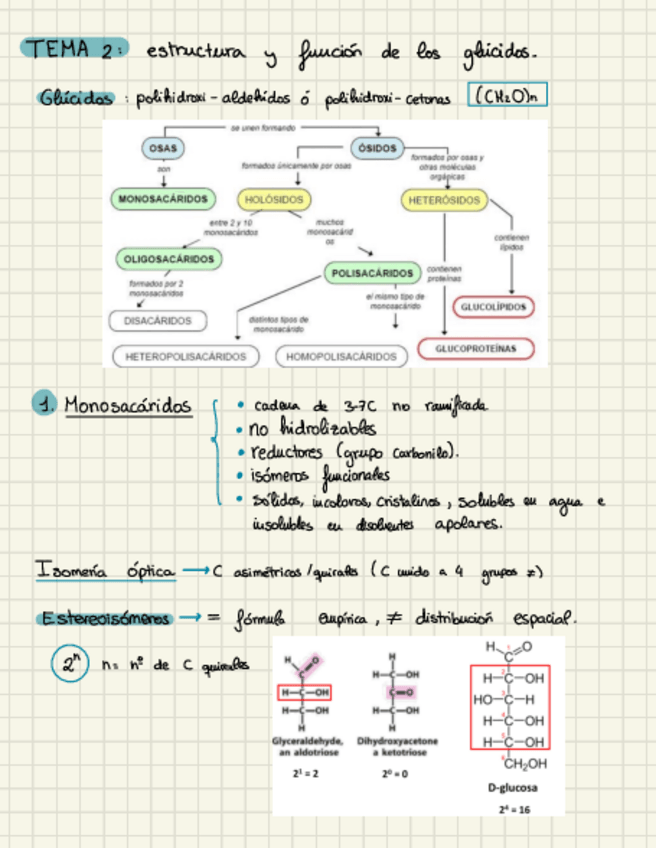 TEMA 2: estructura y función de los glúcidos.
Glúcidos: polihidroxi-aldehídos ó polihidroxi-cetonas (CH₂O)n
se unen formando
OSAS
ÓSIDOS
son
formados únicamente por osas
formados por osas y
otras moléculas
orgápicas
MONOSACÁRIDOS
HOLÓSIDOS
HETERÓSIDOS
entre 2 y 10
monosacáridos
muchos
monosacárid
os
contienen
lípidos
OLIGOSACÁRIDOS
POLISACÁRIDOS
contienen
proteínas
formados por 2
monosacáridos
el mismo tipo de
monosacárido
GLUCOLÍPIDOS
DISACÁRIDOS
distintos tipos de
monosacárido
HETEROPOLISACÁRIDOS
HOMOPOLISACÁRIDOS
GLUCOPROTEÍNAS
1. Monosacáridos
• cadena de 3-7C no ramificada
• no hidrolizables
• reductores (grupo carbonilo).
• isómeros funcionales
• sólidos, incoloros, cristalinos, solubles en agua e
insolubles en disolventes apolares.
Isomería óptica → C asimétricos/quirales (C unido a 4 grupos ≠)
Estereoisómeros → = fórmula empírica, ≠ distribución espacial.
2ⁿ n = nº de C quirales
H O
C
H-C-OH
H-C-OH
H
Glyceraldehyde,
an aldotriose
2¹ = 2
H
H-C-OH
C=O
H-C-OH
H
Dihydroxyacetone
a ketotriose
2⁰ = 0
H 1 O
C
2
H-C-OH
3
HO-C-H
4
H-C-OH
5
H-C-OH
6
CH₂OH
D-glucosa
2⁴ = 16